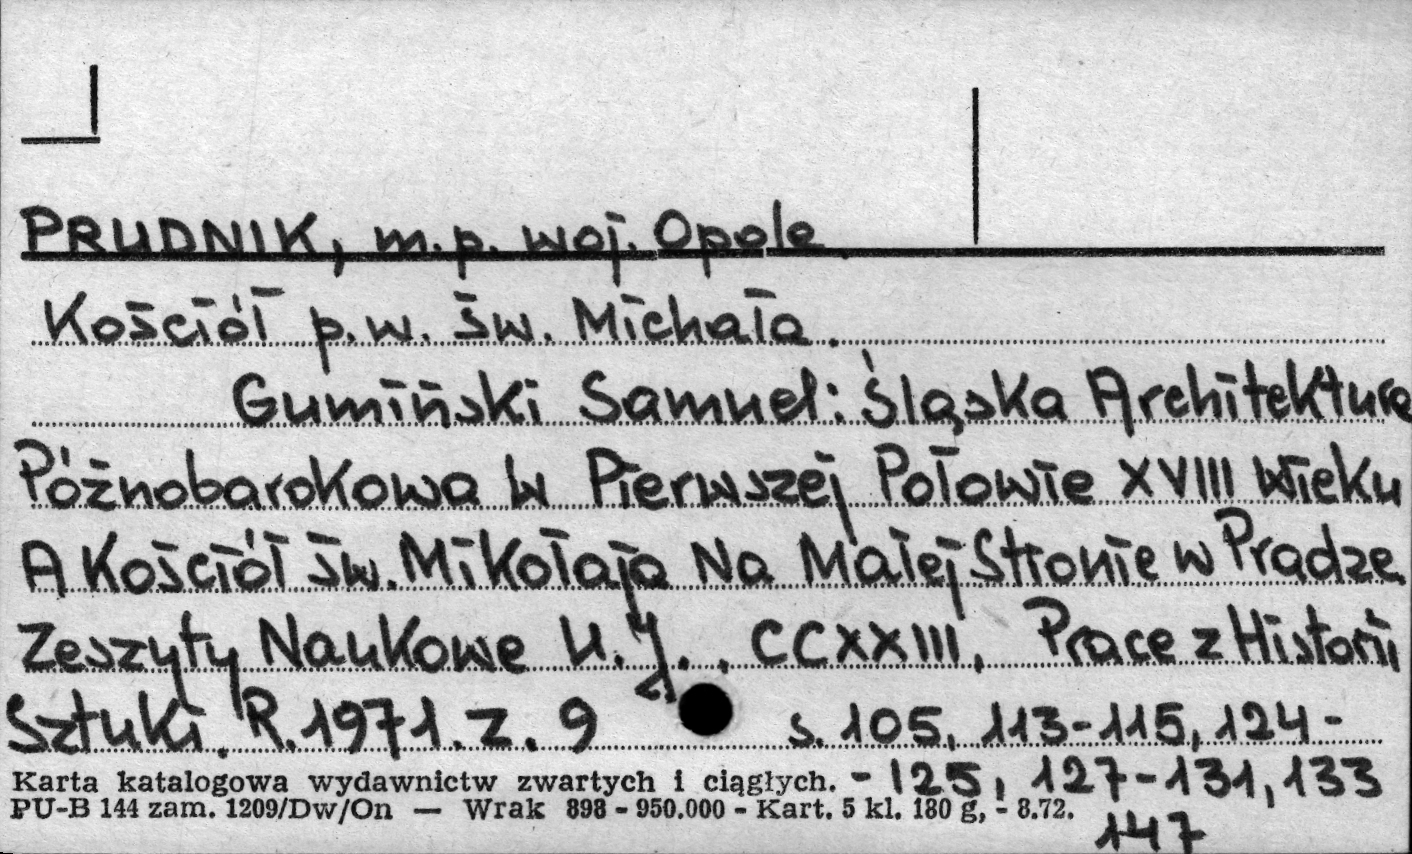 PRUDNIK, m.p. woj. Opole
Kościół p.w. św. Michała.
Gumiński Samuel: Śląska Architektura
Późnobarokowa W Pierwszej Połowie XVIII Wieku
A Kościół św. Mikołaja Na Małej Stronie w Pradze
Zeszyty Naukowe U.J., CCXXIII, Prace z Historii
Sztuki. R. 1971. z. 9 s. 105, 113-115, 124-
Karta katalogowa wydawnictw zwartych i ciągłych. - 125, 127-131, 133
PU-B 144 zam. 1209/Dw/On — Wrak 898 - 950.000 - Kart. 5 kl. 180 g, - 8.72.
147